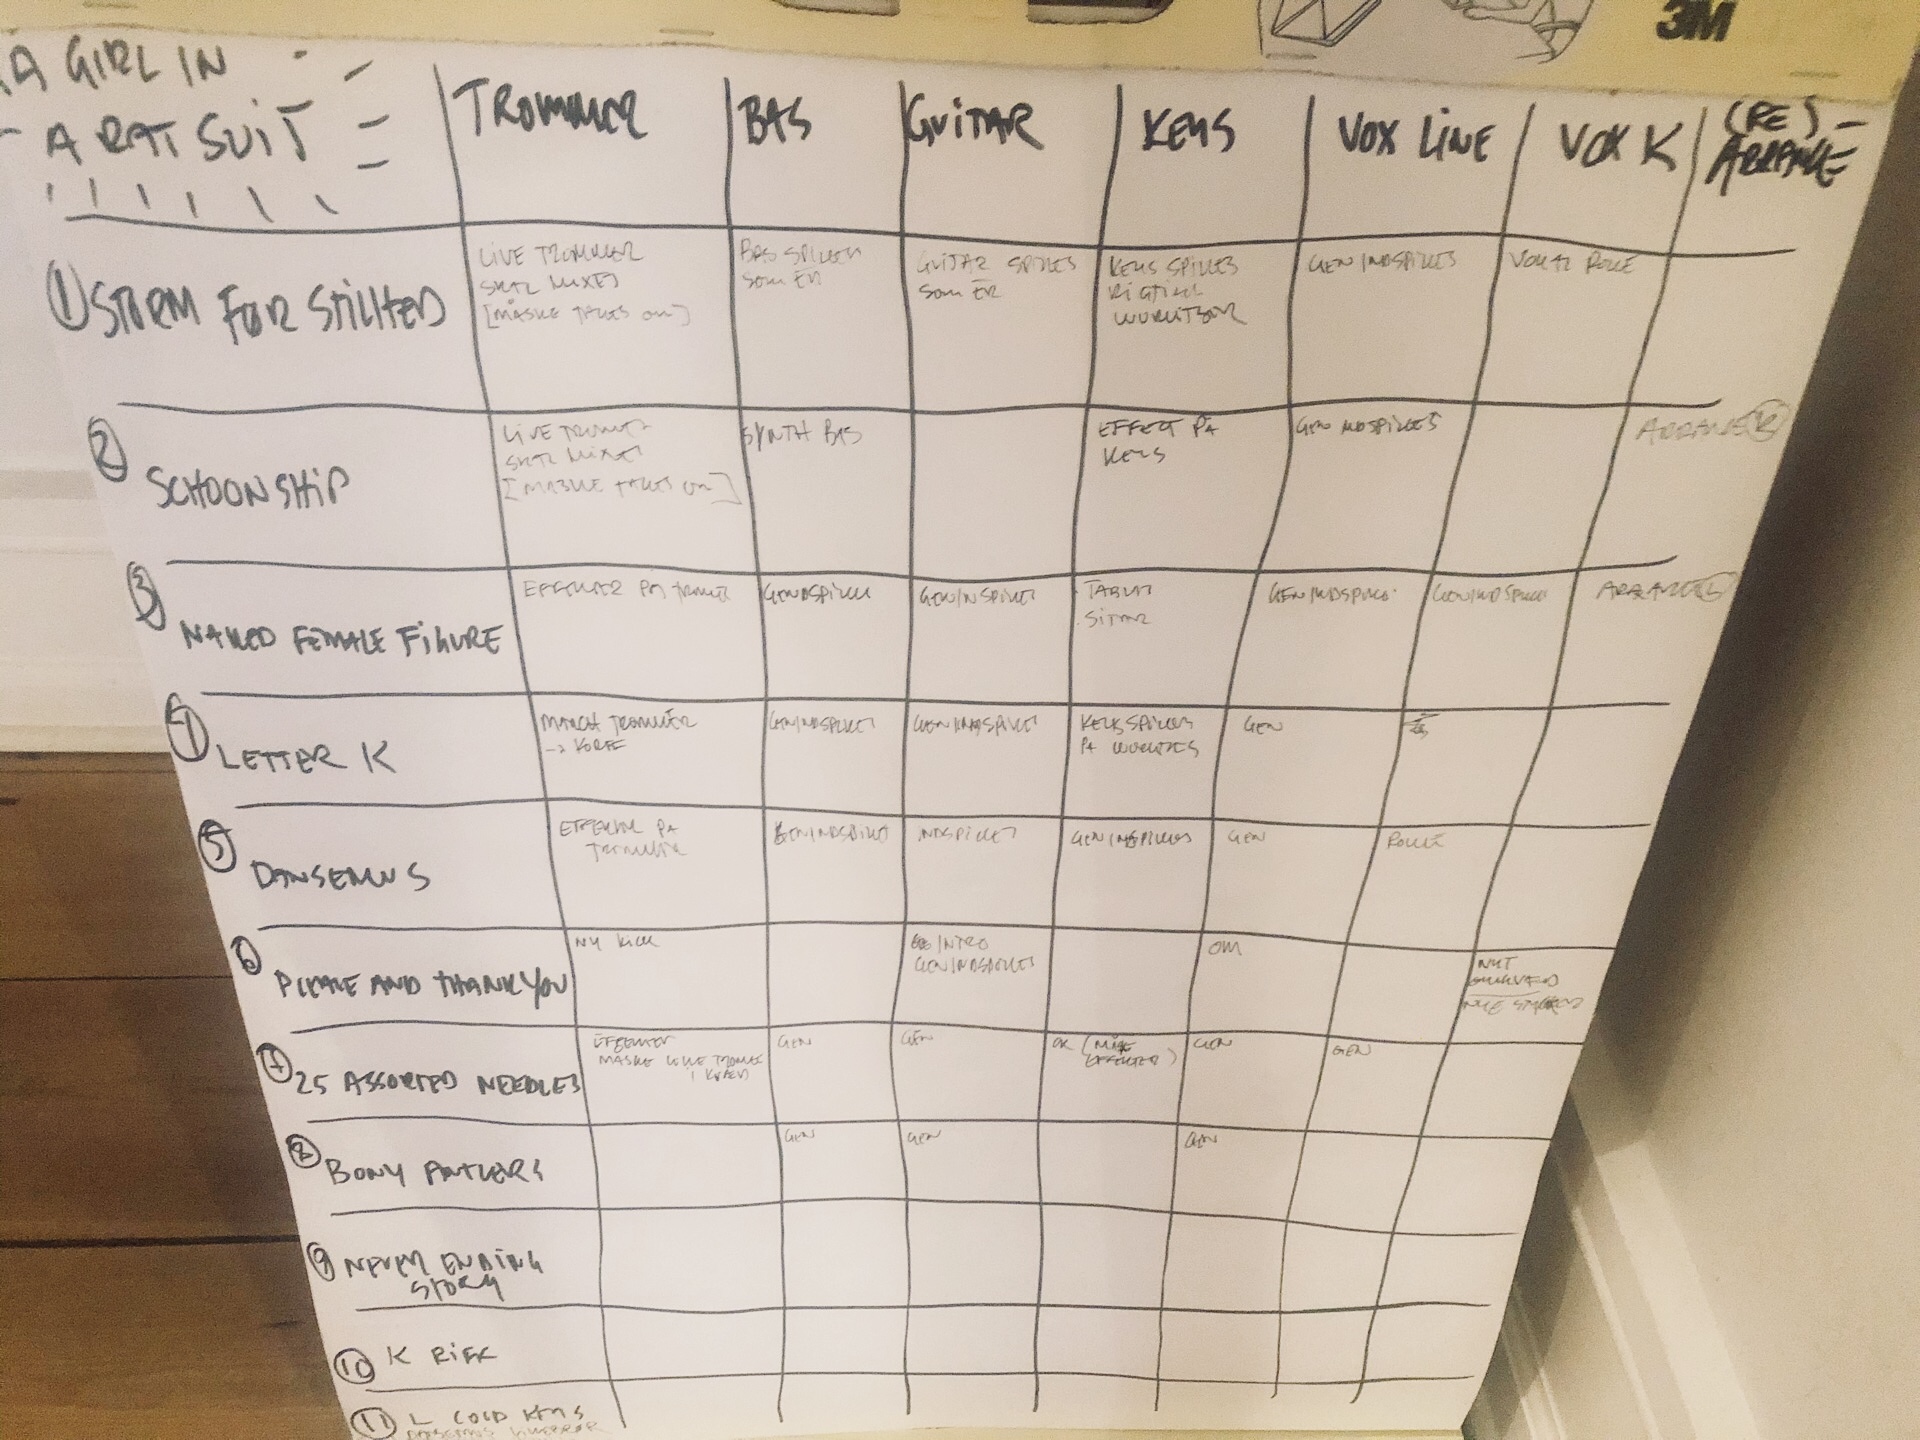 3M
A GIRL IN
A RAT SUIT
TROMMER
BAS
GUITAR
KEYS
VOX LINE
VOX K
(RE)-
ARRANGE
① STORM FØR STILHED
LIVE TROMMER
[MÅSKE TAGES OM]
BAS SPILLES
SOM ER
GUITAR SPILLES
SOM ER
KEYS SPILLES
RIGTIGT
WURLITZER
GENINDSPILLES
② SCHOONSHIP
LIVE TROMMER
[MÅSKE TAGES OM]
SYNTH BAS
EFFECT PÅ
KEYS
GENINDSPILLES
③ NAKED FEMALE FIGURE
EFFEKTER PÅ
GENINDSPILLET
SITAR
GENINDSPILLES
GENINDSPILLES
④ LETTER K
MARCH TROMMER
GENINDSPILLET
GENINDSPILLET
KEYS SPILLES
PÅ
GEN
⑤ DANSEMUS
EFFEKTER PÅ
TROMMER
GENINDSPILLET
INDSPILLET
GENINDSPILLES
GEN
⑥ PLEASE AND THANK YOU
NY KICK
INTRO
GENINDSPILLET
OM
NYT
⑦ 25 ASSORTED NEEDLES
EFFEKTER
MÅSKE LIVE TROMMER
GEN
GEN
OK (MÅSKE
EFFEKTER)
GEN
GEN
⑧ BONY ANTLERS
GEN
GEN
GEN
⑨ NEVER ENDING
STORY
⑩ K RIFF
⑪ L COLD KEYS